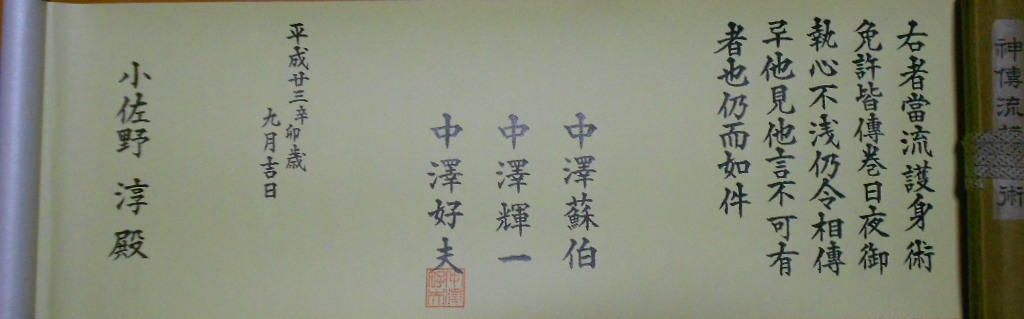 神傳流
術
右者當流護身術
免許皆傳巻日夜御
執心不浅仍令相傳
早他見他言不可有
者也仍而如件
中澤蘇伯
中澤輝一
中澤好夫
平成廿三辛卯歳
九月吉日
小佐野淳殿